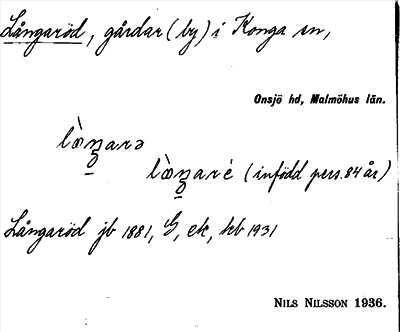 Långaröd, gårdar (by) i Konga sn,
Onsjö hd, Malmöhus län.
lòŋarə
lòŋaré (infödd pers. 84 år)
Långaröd jb 1881, G, ek, hb 1931
NILS NILSSON 1936.